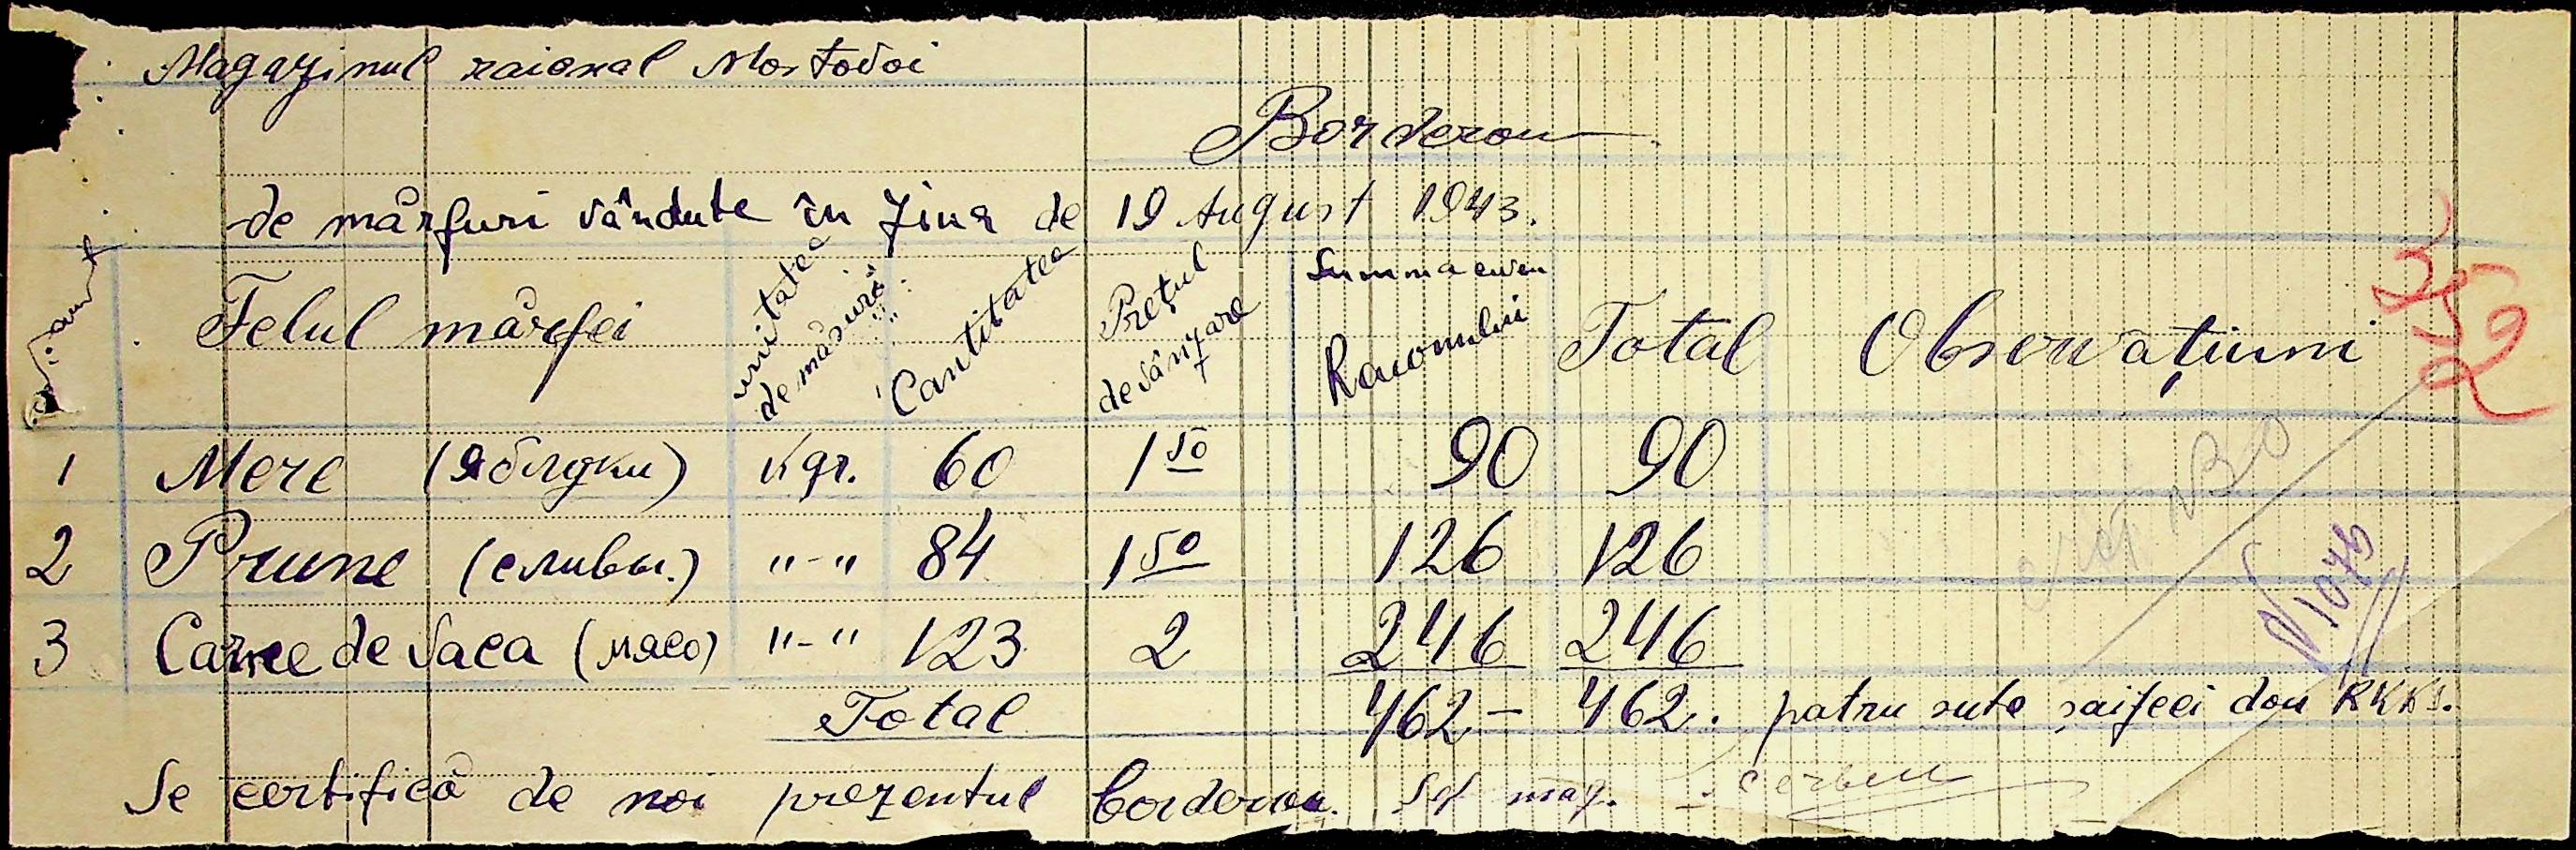 Magazinul raional Mostovoi
Borderou
de mărfuri vândute în ziua de 19 August 1943.
Felul mărfei unitatea de măsură Cantitatea Prețul de vânzare Summa Raionului Total Observațiuni
352
1 Mere (яблуки) Kgr. 60 1 50 90 90
2 Prune (сливы.) "-" 84 1 50 126 126
3 Carne de vaca (мясо) "-" 123 2 246 246
Total 462- 462. patru sute șaizeci dou RKKS.
Se certifică de noi prezentul borderou. Șef mag.